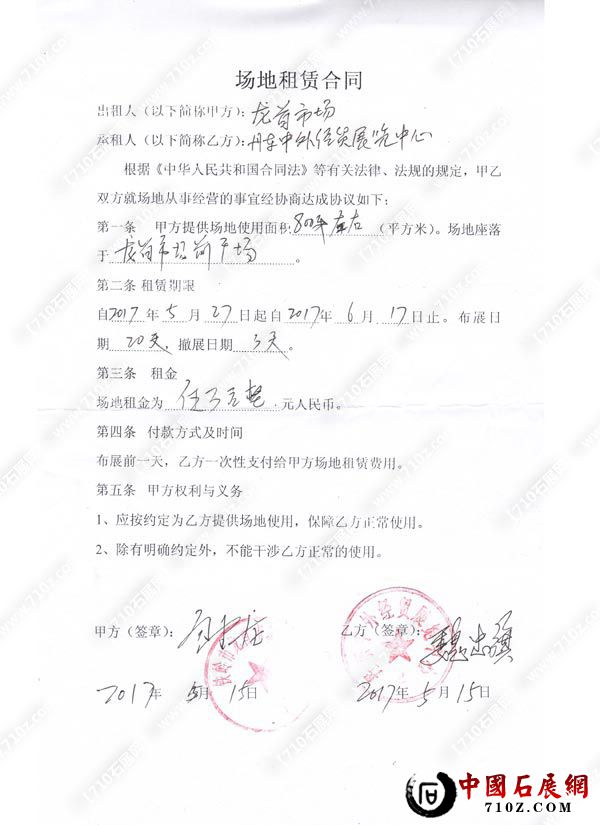 场地租赁合同
出租人（以下简称甲方）：龙首市场
承租人（以下简称乙方）：丹东中外经贸展览中心
根据《中华人民共和国合同法》等有关法律、法规的规定，甲乙
双方就场地从事经营的事宜经协商达成协议如下：
第一条 甲方提供场地使用面积800平左右（平方米）。场地座落
于龙首市场前广场。
第二条 租赁期限
自2017年5月27日起自2017年6月17日止。布展日
期20天，撤展日期3天。
第三条 租金
场地租金为元人民币。
第四条 付款方式及时间
布展前一天，乙方一次性支付给甲方场地租赁费用。
第五条 甲方权利与义务
1、应按约定为乙方提供场地使用，保障乙方正常使用。
2、除有明确约定外，不能干涉乙方正常的使用。
甲方（签章）：
乙方（签章）：
2017年5月15日
2017年5月15日
中國石展網
710z.com